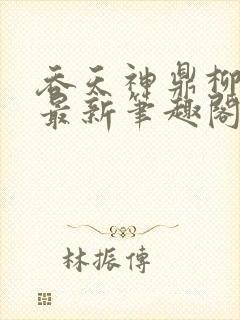 吞天神鼎柳
最新笔趣閣
林振傳